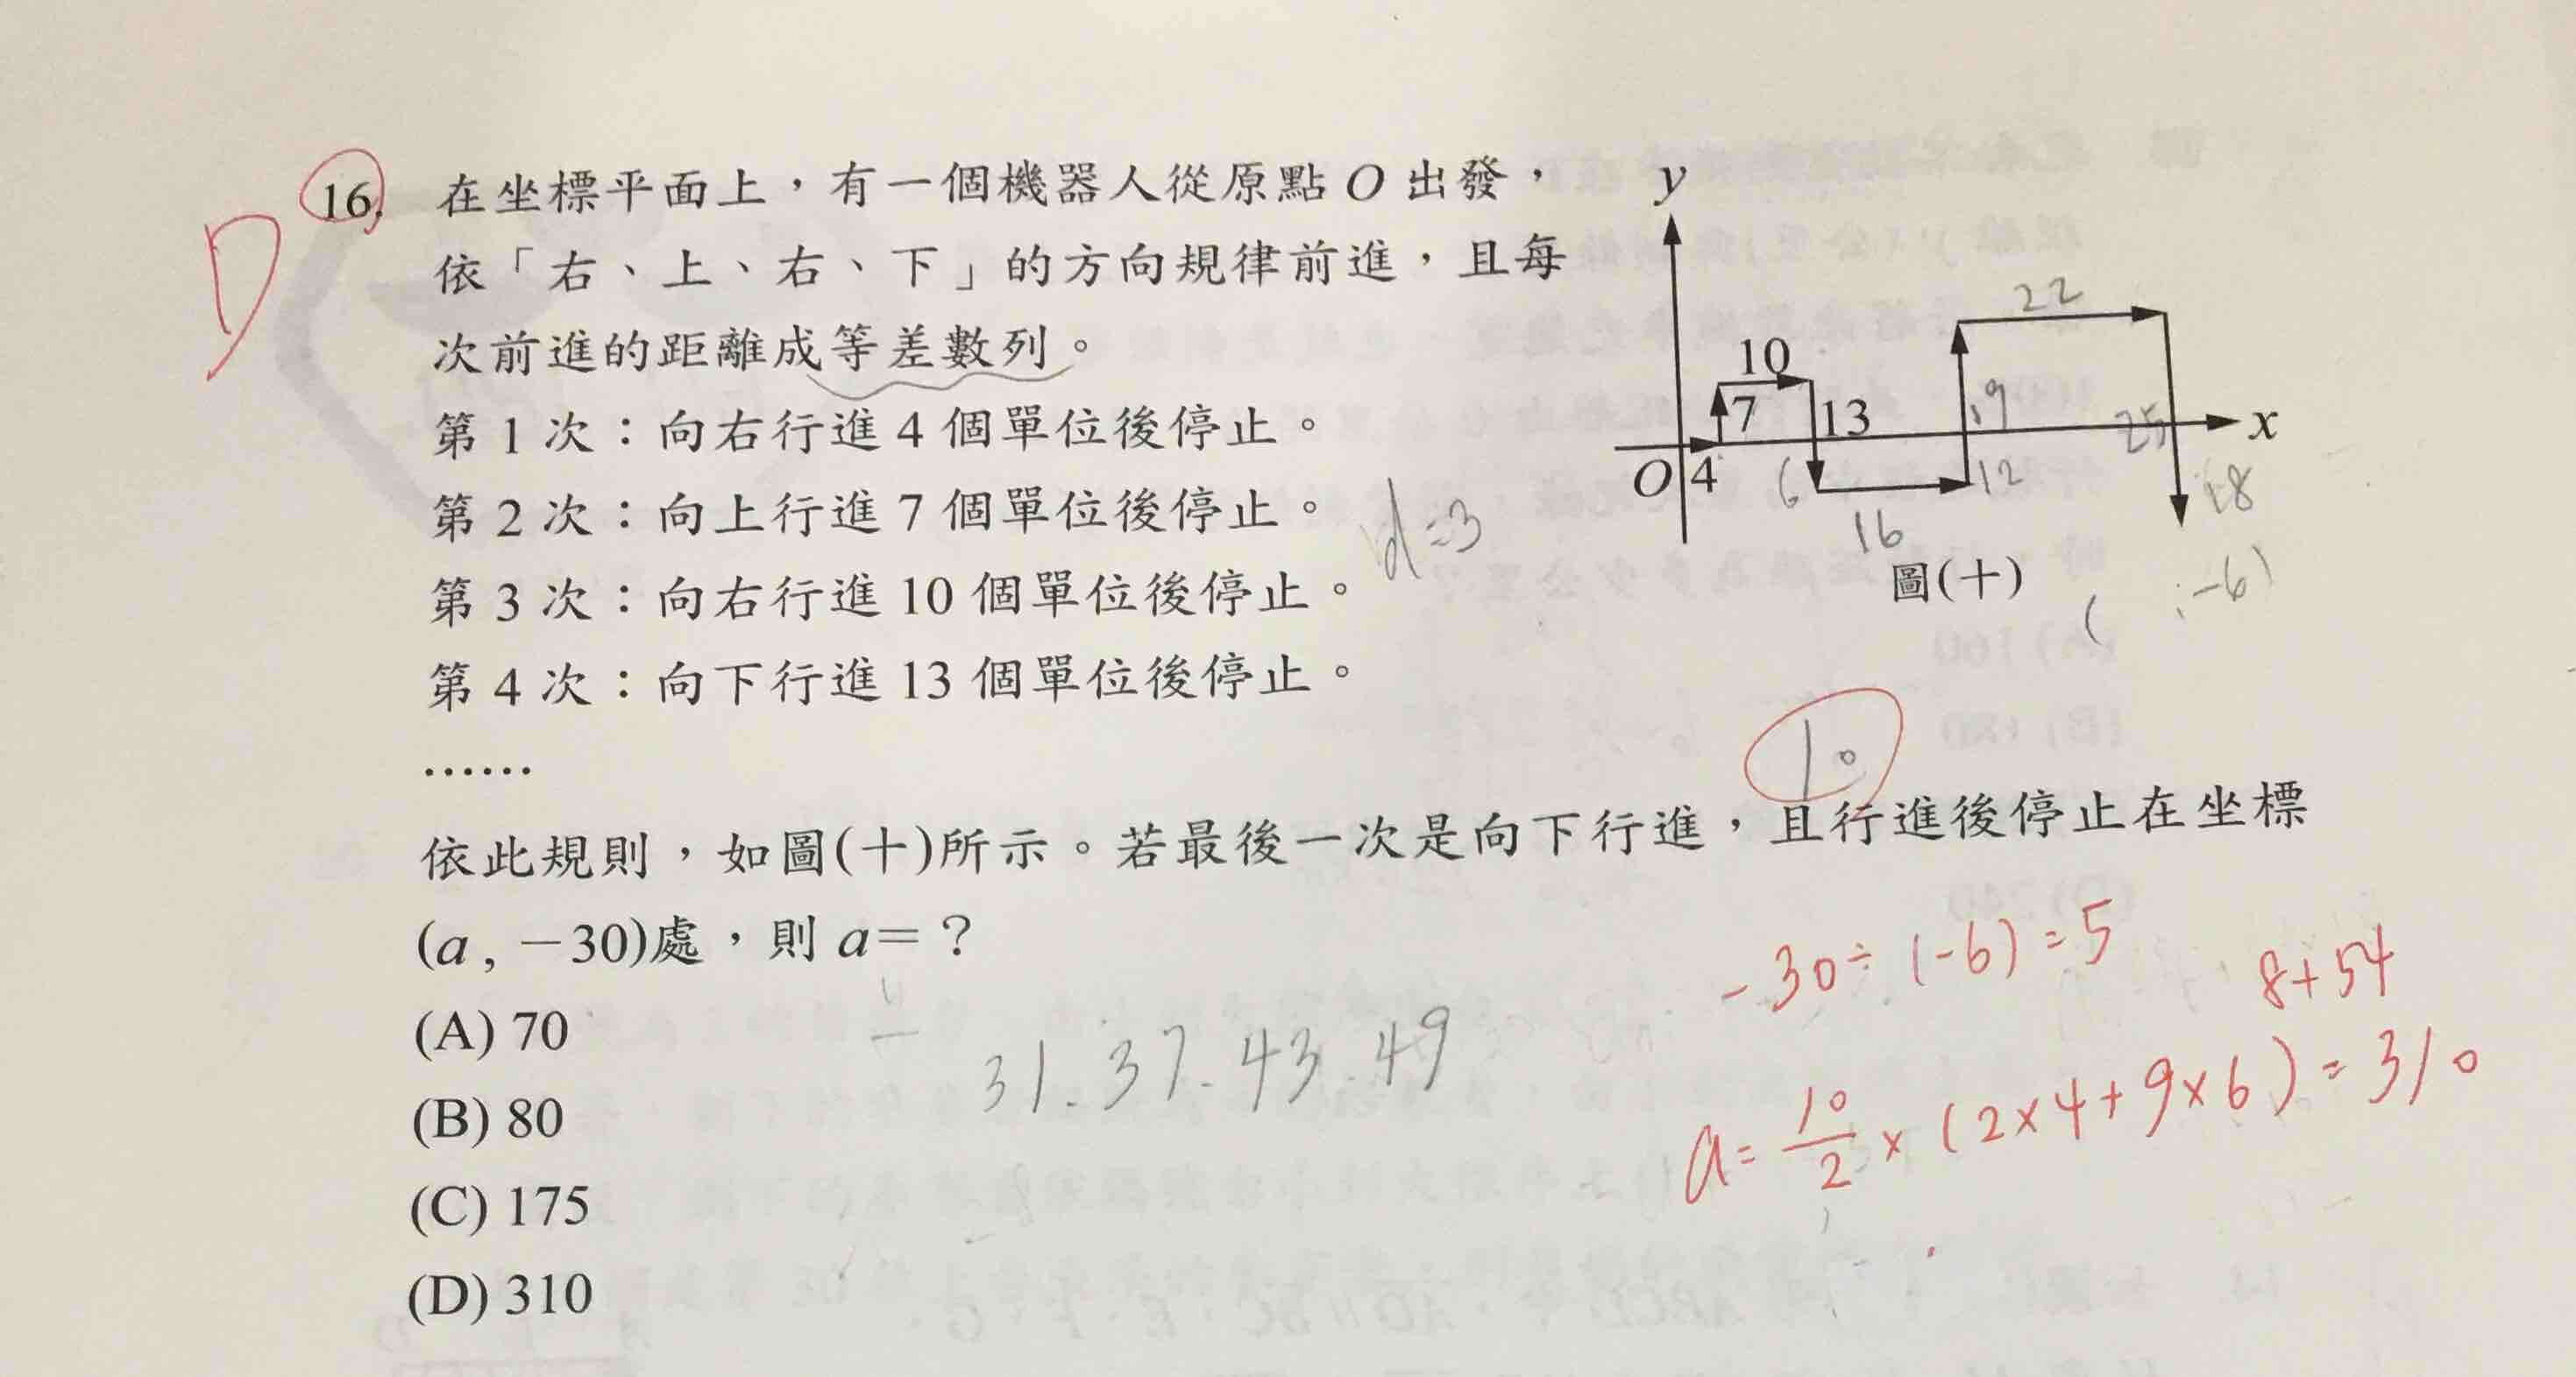 D
16. 在坐標平面上，有一個機器人從原點 O 出發，
依「右、上、右、下」的方向規律前進，且每
次前進的距離成等差數列。
第 1 次：向右行進 4 個單位後停止。
第 2 次：向上行進 7 個單位後停止。
第 3 次：向右行進 10 個單位後停止。
第 4 次：向下行進 13 個單位後停止。
……
d=3
y
22
10
7
13
19
25
x
O
4
6
12
18
16
圖(十)
( , -6)
10
依此規則，如圖(十)所示。若最後一次是向下行進，且行進後停止在坐標
(a , －30)處，則 a=？
-30÷(-6)=5
8+54
(A) 70
31.37.43.49
a=10/2×(2×4+9×6)=310
(B) 80
(C) 175
(D) 310